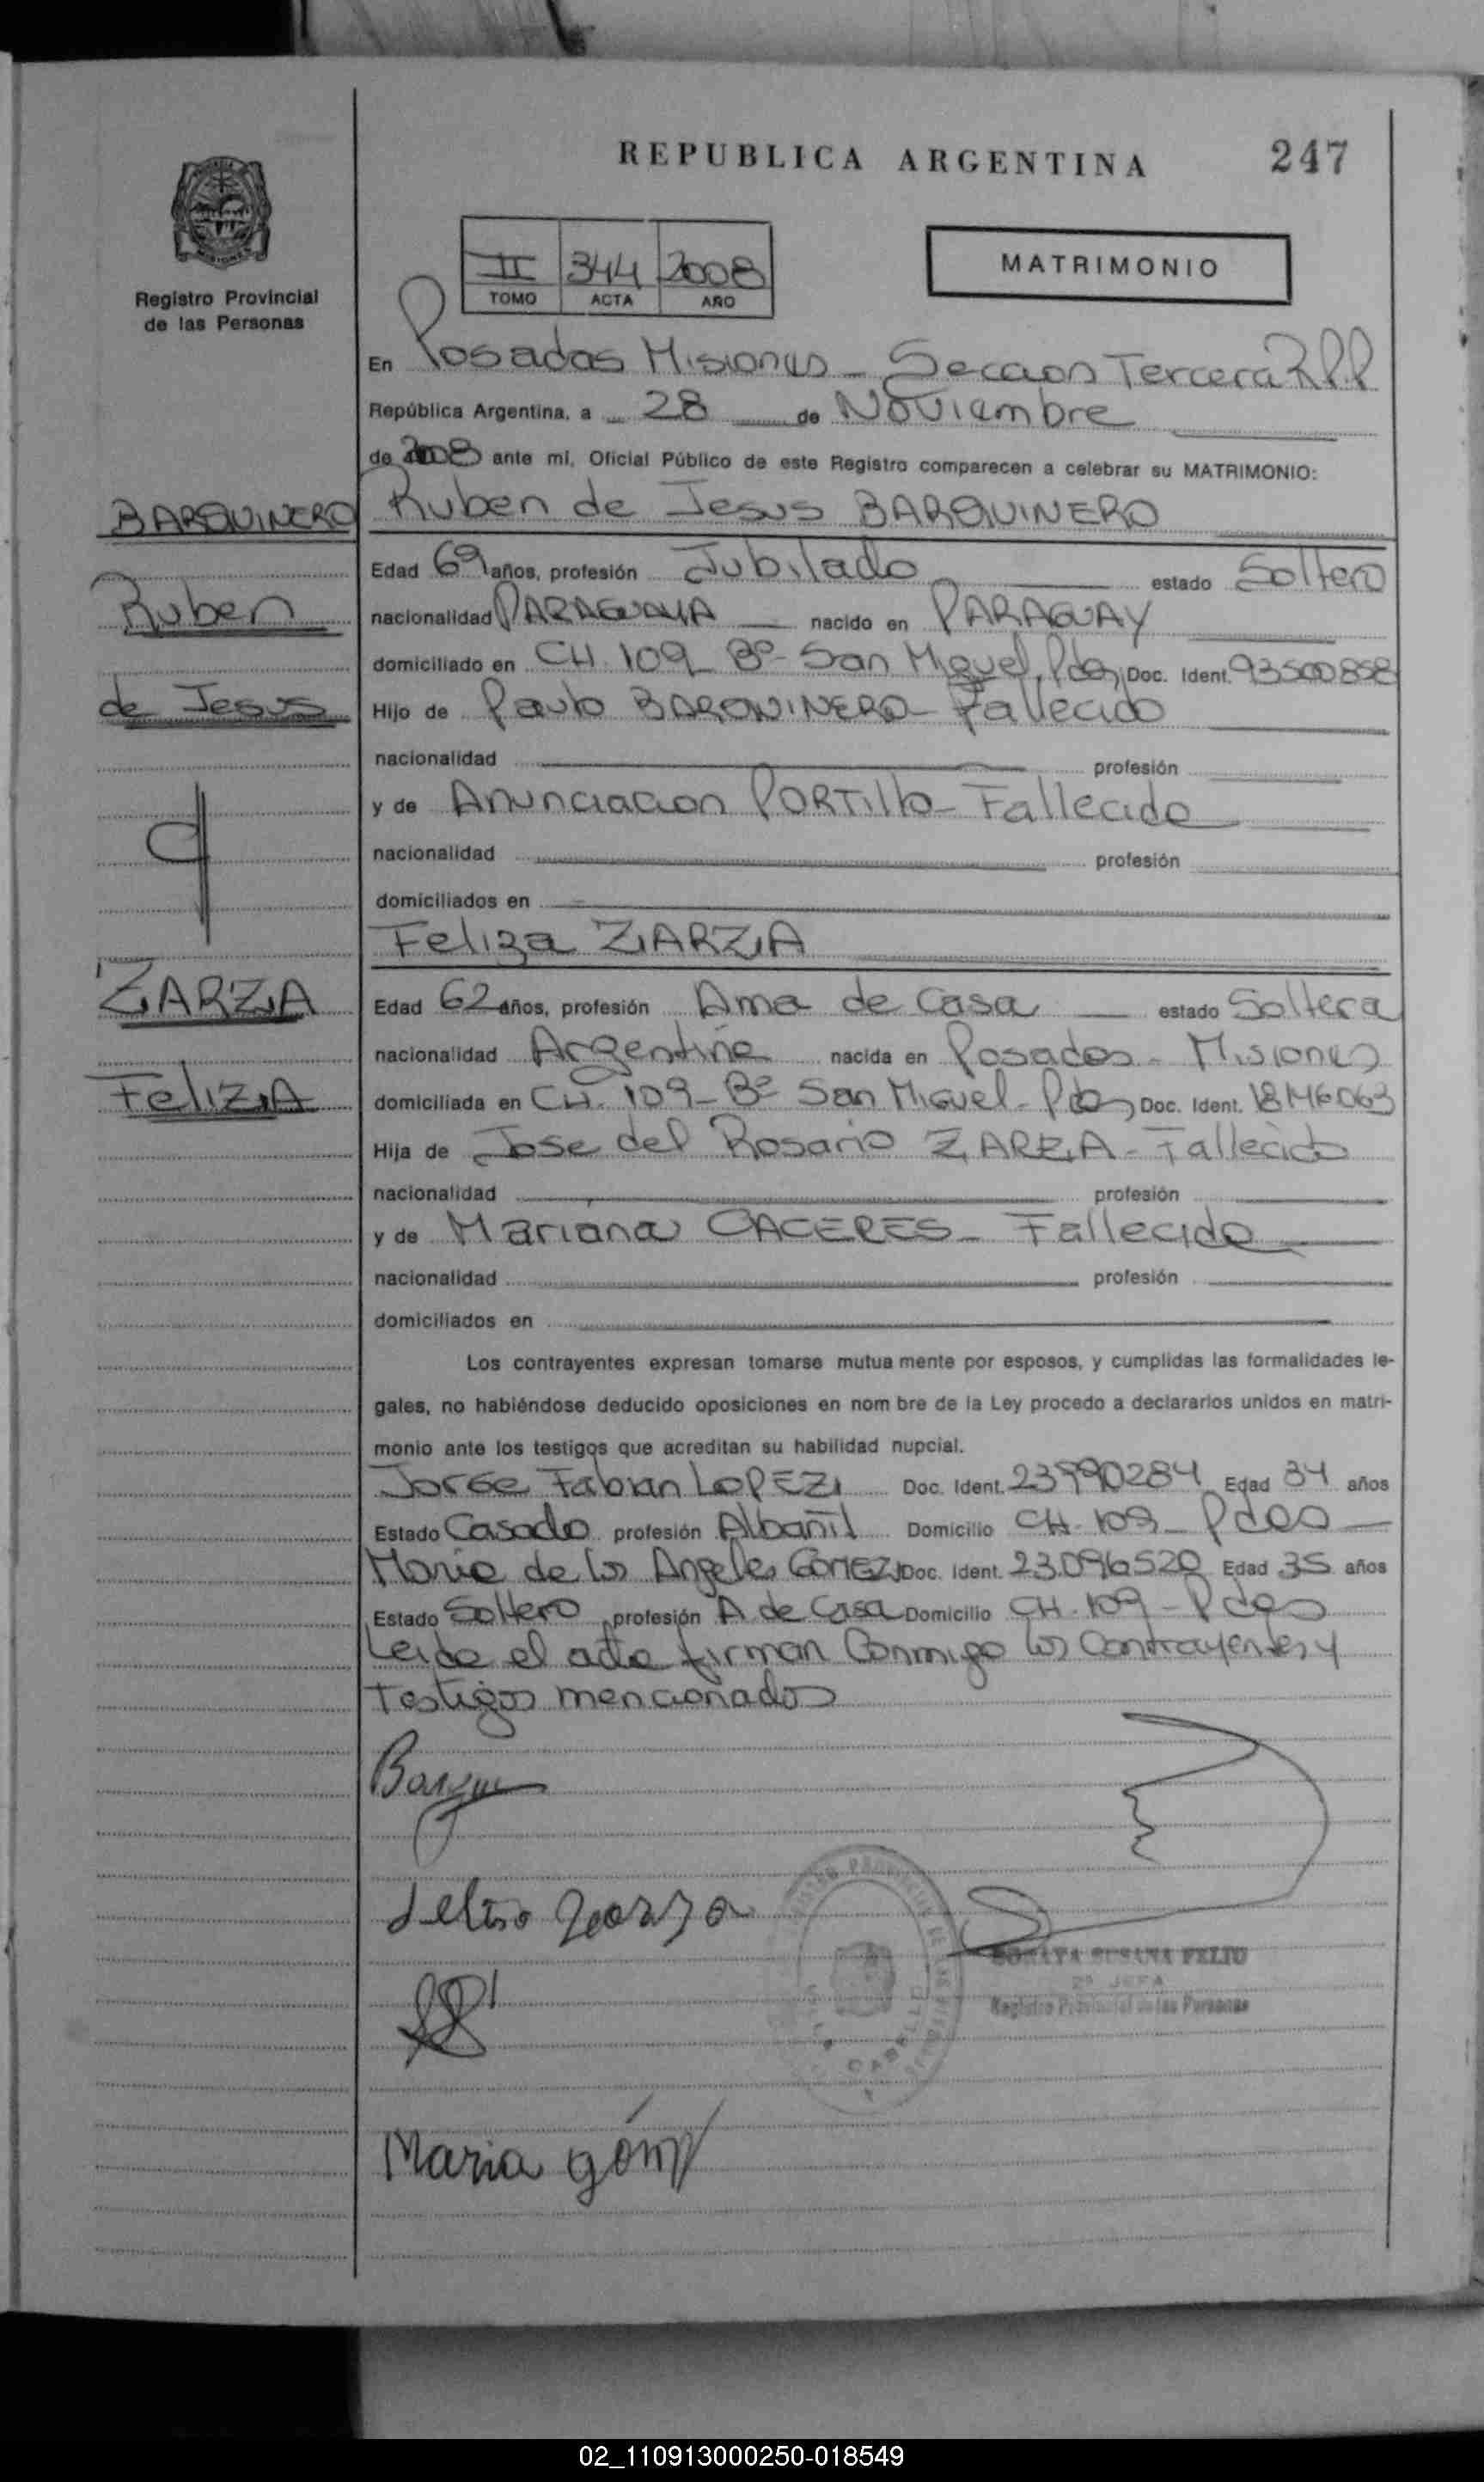 REPUBLICA ARGENTINA 247
II 344 2008
TOMO ACTA AÑO
MATRIMONIO
Registro Provincial
de las Personas
En Posadas Misiones - Seccion Tercera RPP
República Argentina, a 28 de Noviembre
de 2008 ante mí, Oficial Público de este Registro comparecen a celebrar su MATRIMONIO:
BARQUINERO
Ruben de Jesus BARQUINERO
Edad 69 años, profesión Jubilado estado Soltero
Ruben
nacionalidad PARAGUAYA nacido en PARAGUAY
domiciliado en CH. 109 - Bº - San Miguel, Pdas, Doc. Ident. 93500858
de Jesus
Hijo de Paulo BARQUINERO - Fallecido
nacionalidad profesión
y de Anunciacion PORTILLO - Fallecida
nacionalidad profesión
domiciliados en
Feliza ZARZA
ZARZA
Edad 62 años, profesión Ama de Casa estado Soltera
nacionalidad Argentina nacida en Posadas - Misiones
FelizA
domiciliada en CH. 109 - Bº San Miguel - Pdas, Doc. Ident. 18146063
Hija de Jose del Rosario ZARZA - Fallecido
nacionalidad profesión
y de Mariana CACERES - Fallecida
nacionalidad profesión
domiciliados en
Los contrayentes expresan tomarse mutua mente por esposos, y cumplidas las formalidades le-
gales, no habiéndose deducido oposiciones en nom bre de la Ley procedo a declararlos unidos en matri-
monio ante los testigos que acreditan su habilidad nupcial.
Jorge Fabian LOPEZ Doc. Ident. 23990284 Edad 34 años
Estado Casado profesión Albañil Domicilio CH. 109 - Pdas
Maria de los Angeles GOMEZ Doc. Ident. 23.096520 Edad 35 años
Estado Soltero profesión A de Casa Domicilio CH. 109 - Pdas
Leida el acta firman Conmigo los Contrayentes y
Testigos mencionados
Feliza Zarza
SUSANA FELIU
2ª JEFA
Registro Provincial de las Personas
Maria góm
02_110913000250-018549